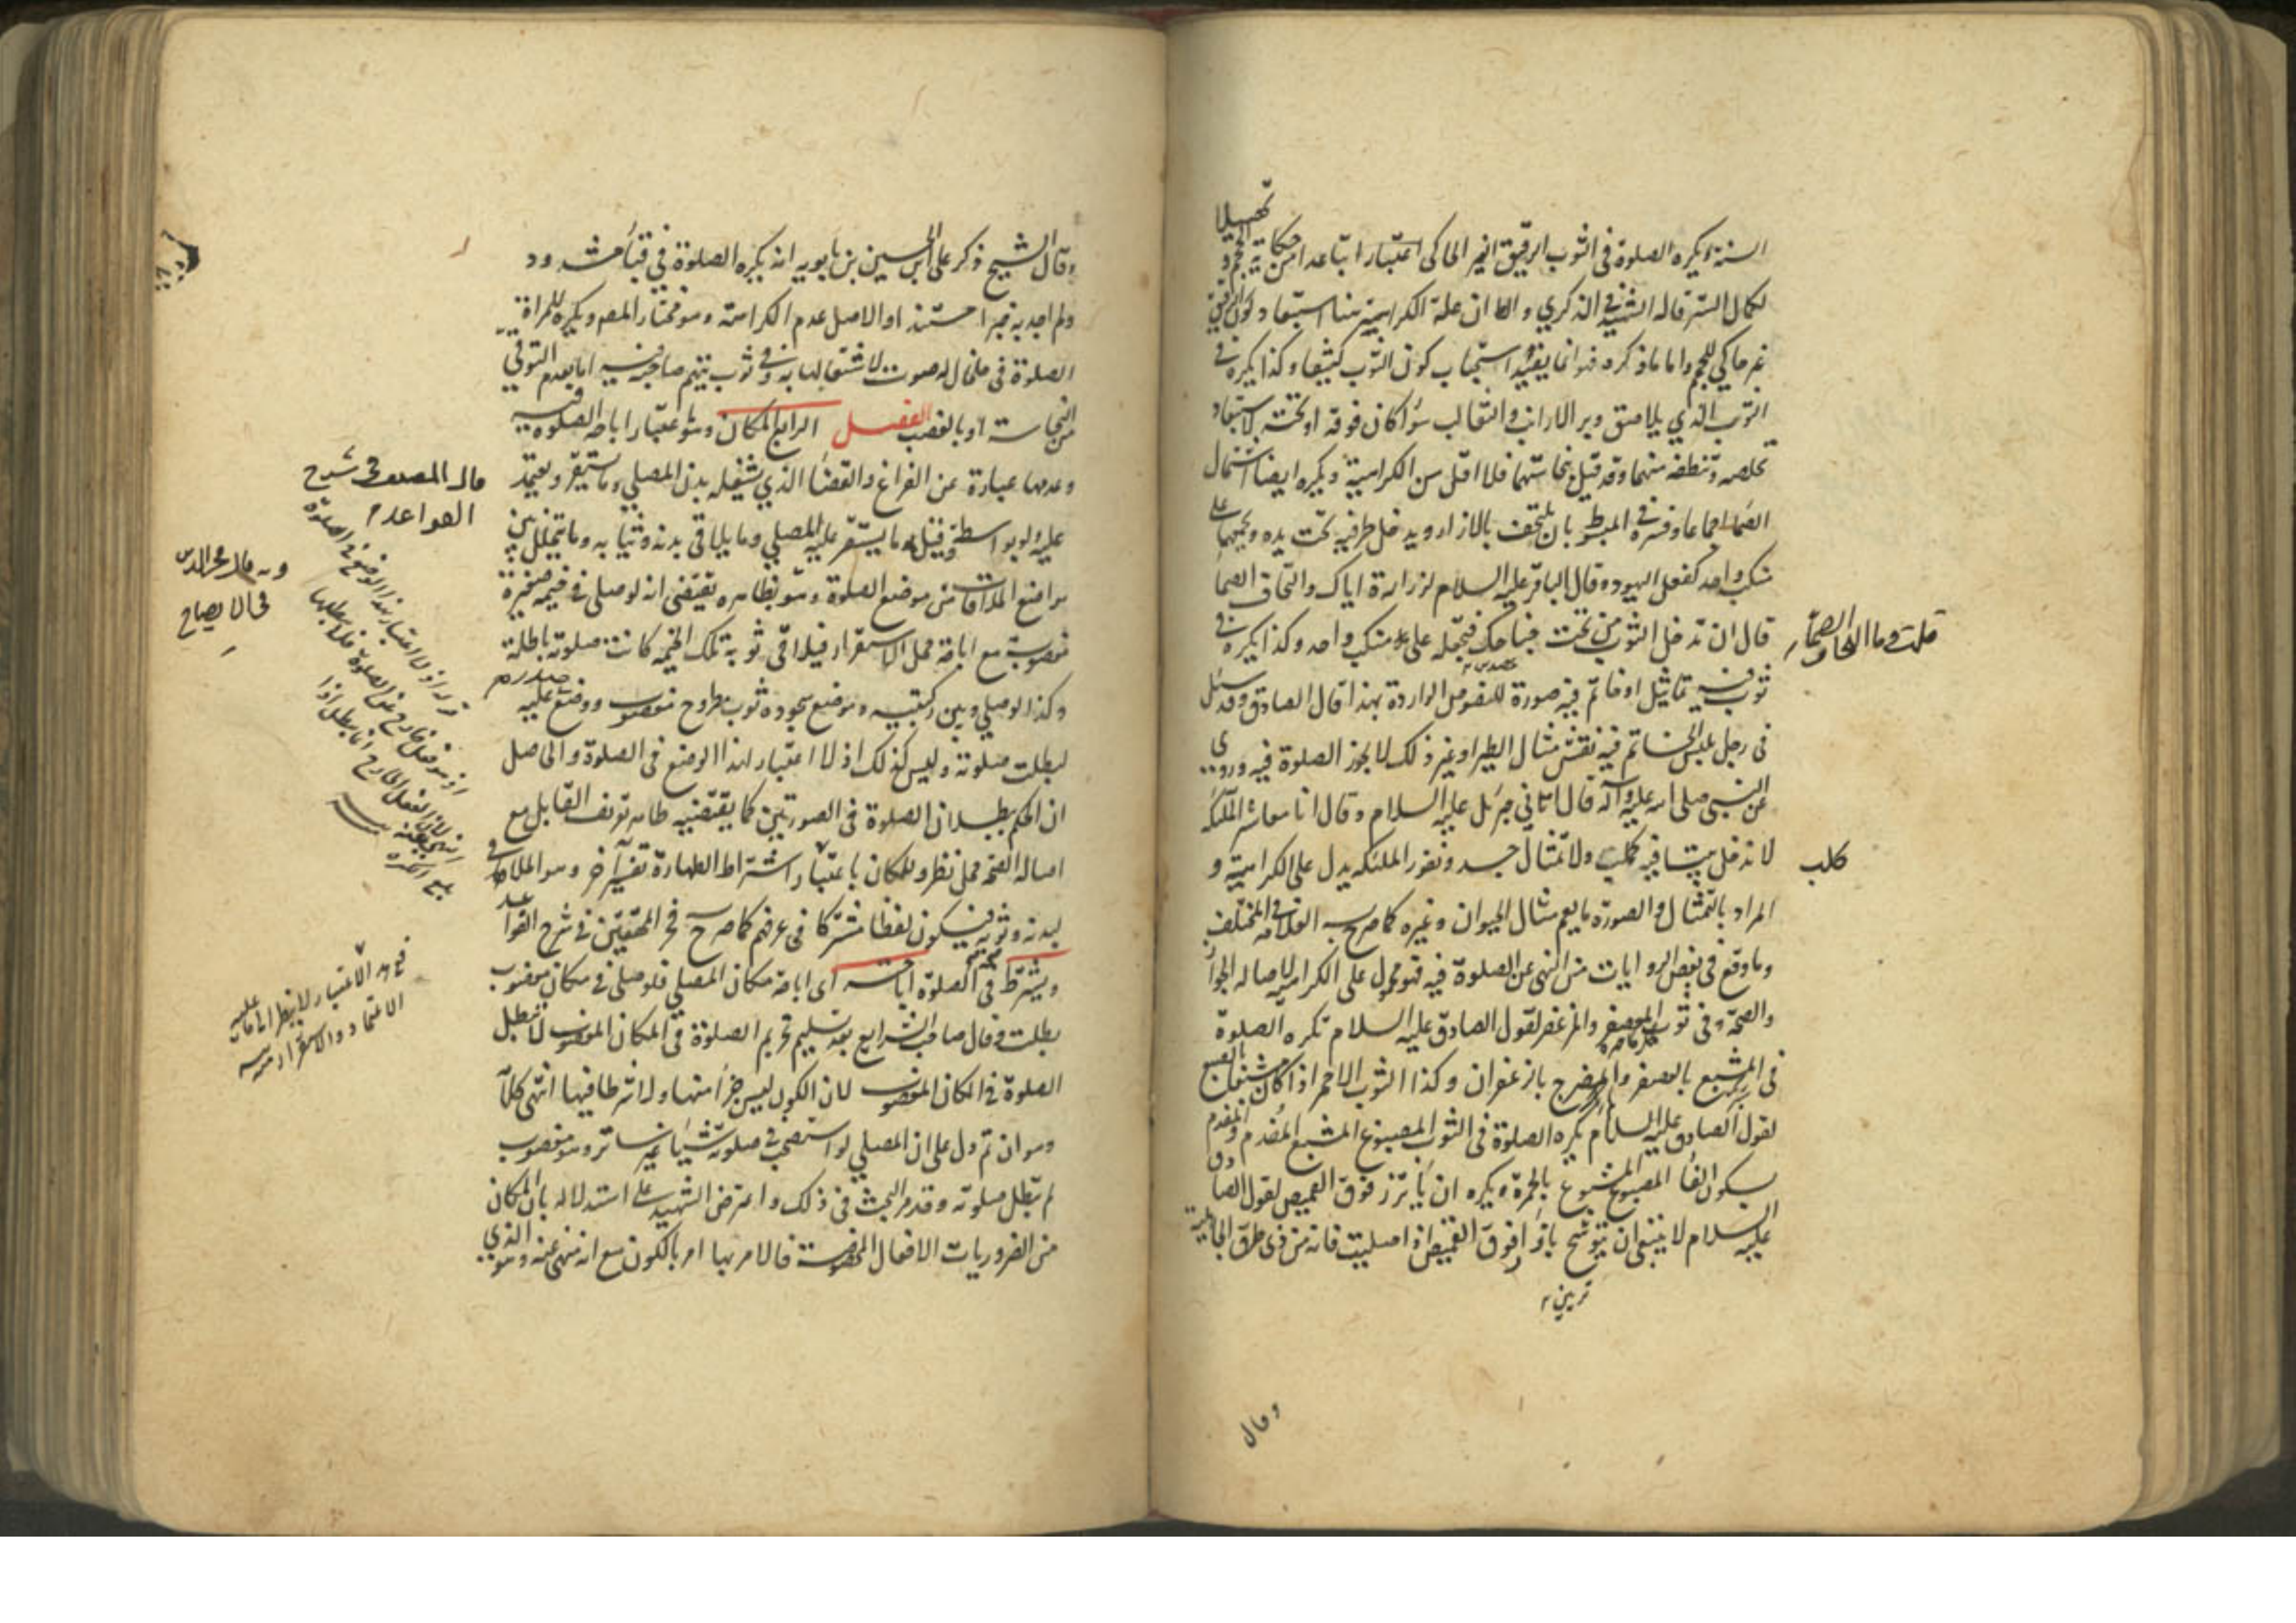 تحصيلا
السترة ويكره الصلوة في الثوب الرقيق الغير الحاكي اعتبارا تباعدا من حكاية الحجم و
لكمال الستر قاله الشهيد في الذكرى و الظ ان علة الكراهية هنا استبعاد لكون الرقيق
غير حاكي للحجم واما ما ذكره فهو انما يفيد استحباب كون الثوب كثيفا وكذا يكره في
الثوب الذي يلاصق وبر الارانب والثعالب سواء كان فوقه او تحته لاستبعاد
تخلصه وتنظفه منهما وقد قيل بنجاستهما فلا اقل من الكراهية ويكره ايضا اشتمال
الصماء اجماعا وفسره في المبسوط بان يلتحف بالازار ويدخل طرفيه تحت يده ويجمعهما على
منكب واحد كفعل اليهود وقال الباقر عليه السلام لزرارة اياك والتحاف الصماء
قلت وما التحاف الصماء
قال ان تدخل الثوب من تحت جناحك فتجعله على منكب واحد وكذا يكره في
ثوب فيه تماثيل او خاتم فيه صورة للنصوص الواردة بهذا قال الصادق وقد سئل
في رجل يلبس الخاتم فيه نقش مثال الطير او غير ذلك لا يجوز الصلوة فيه وروي
عن النبي صلى الله عليه وآله قال اتاني جبرئل عليه السلام وقال انا معاشر الملئكة
لا ندخل بيتا فيه كلب ولا تمثال جسد ونفور الملئكة يدل على الكراهية و
كلب
المراد بالتمثال والصورة ما يعم مثال الحيوان وغيره كما صرح به العلامة في المختلف
وما وقع في بعض الروايات من النهي عن الصلوة فيه فهو محمول على الكراهية لاصالة الجواز
والصحة وفي ثوب المعصفر والمزعفر لقول الصادق عليه السلام تكره الصلوة
في المشبع بالعصفر والمضرج بالزعفران وكذا الثوب الاحمر اذا كان مشبعا بالصبغ
لقول الصادق عليه السلام يكره الصلوة في الثوب المصبوغ المشبع المفدم والمفدم
بسكون الفاء المصبوغ المشبوع بالحمرة ويكره ان يأتزر فوق القميص لقول الصادق
عليه السلام لا ينبغي ان تتوشح بازار فوق القميص اذا صليت فانه من زي الجاهلية
وقال
وقال الشيخ ذكر علي ابن الحسين بن بابويه انه يكره الصلوة في قباء مشدود
ولم اجد به خبرا مسندا والاصل عدم الكراهة وهو مختار المص ويكره للمراة
الصلوة في خلخال له صوت لاشتغالها به وفي ثوب يتهم صاحبه فيه اما بعدم التوقي
من النجاسة او بالغصب الفصل الرابع المكان وهو باعتبار اباحة الصلوة فيه
وعدمها عبارة عن الفراغ والفضاء الذي يشغله بدن المصلي وما يستقر ويعتمد
عليه ولو بواسطة وقيل ما يستقر عليه المصلي وما يلاقي بدنه وثيابه وما يتخلل بين
مواضع الملاقات من موضع الصلوة وهو بظاهره يقتضي انه لو صلى في خيمة صغيرة
مغصوبة مع اباحة محل الاستقرار فيلاقي ثوبه تلك الخيمة كانت صلوته باطلة
وكذا لو صلى وبين ركبتيه وموضع سجوده ثوب مطروح مغصوب ووضع عليه
لبطلت صلوته وليس كذلك اذ لا اعتبار لهذا الوضع في الصلوة والحاصل
ان الحكم ببطلان الصلوة في الصورتين كما يقتضيه ظاهر تعريف القايل مع
اصالة الصحة محل نظر وللمكان باعتبار اشتراط الطهارة تفسير آخر وهو الملاقي
لبدنه وثوبه فيكون لفظا مشتركا في عرفهم كما صرح فخر المحققين في شرح القواعد
ويشترط في صحة الصلوة اباحته اى اباحة مكان المصلي فلو صلى في مكان مغصوب
بطلت وقال صاحب الشرايع بعد تسليم تحريم الصلوة في المكان المغصوب لا تبطل
الصلوة في المكان المغصوب لان الكون ليس جزءا منها ولا شرطا فيها انتهى كلامه
وهو ان تم دل على ان المصلي لو استصحب في صلوته شيئا غير ساتر وهو مغصوب
لم تبطل صلوته وقد مر البحث في ذلك واعترض الشهيد على استدلاله بان المكان
من الضروريات الافعال المخصوصة فالامر بها امر بالكون مع انه منهي عنه وهو الذي
قال المصنف في شرح
القواعد
وبه قال فخر الدين
في الايضاح